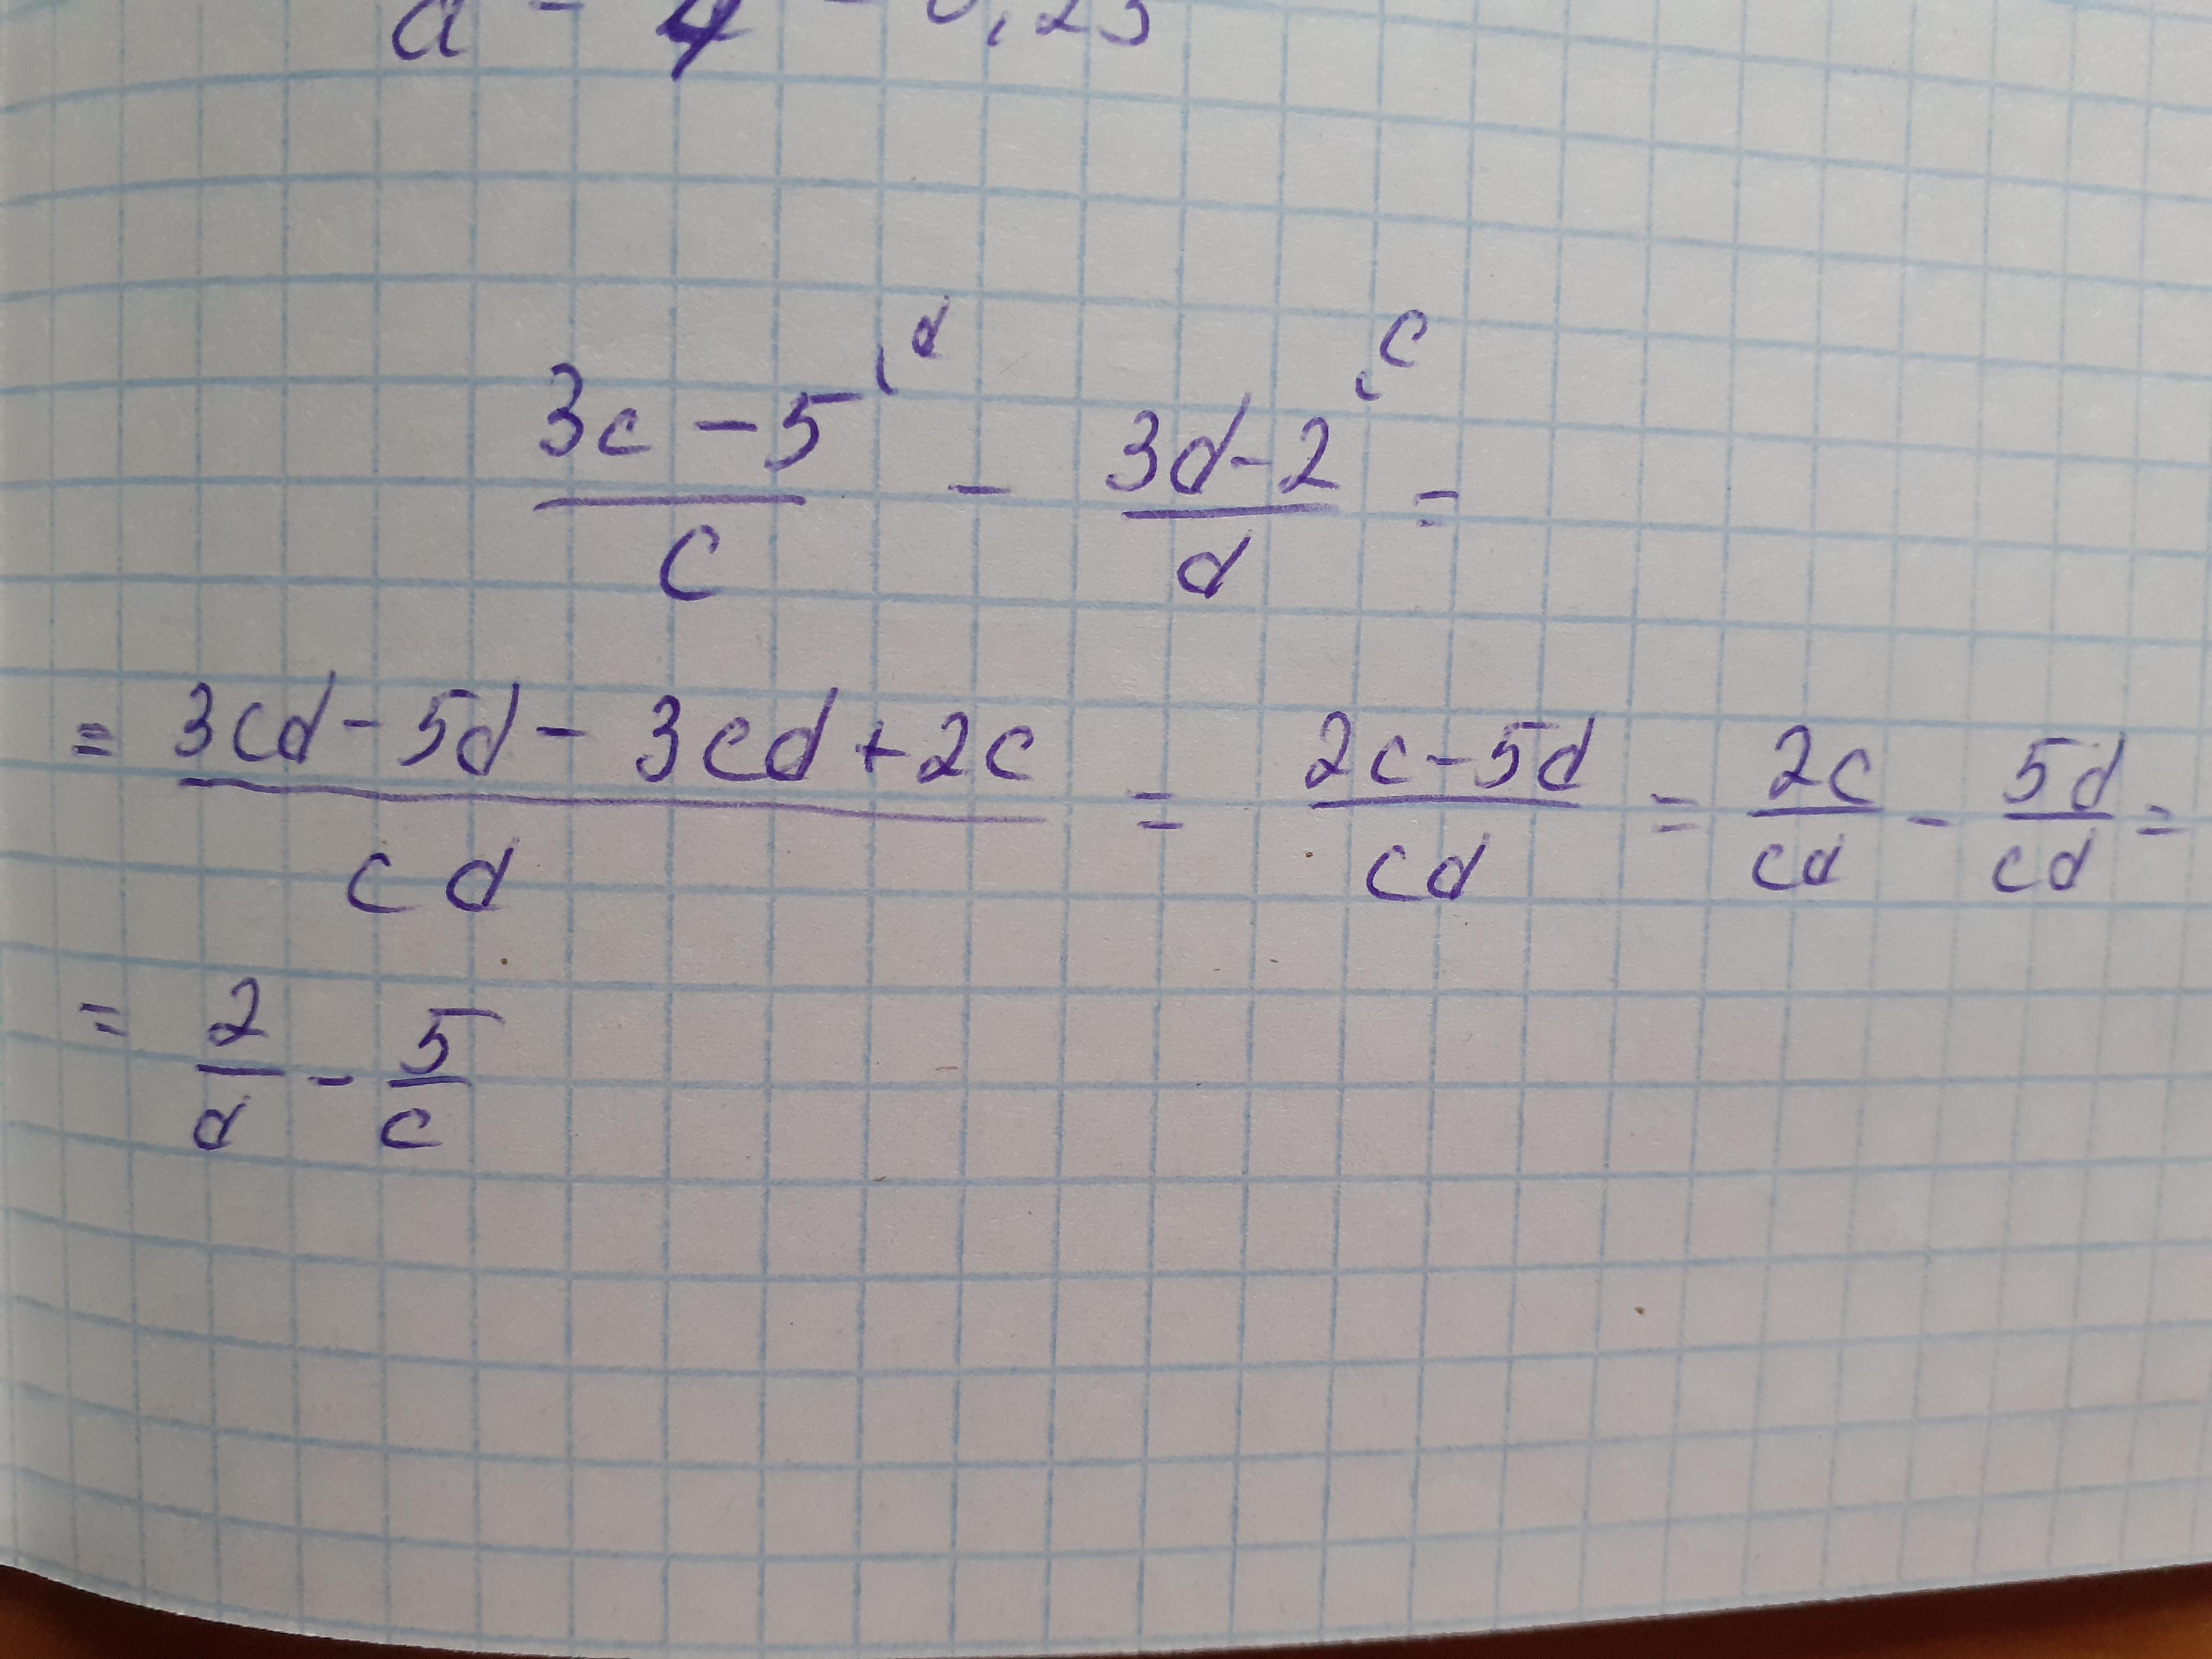 a = 4 = 0,25
(3c - 5)/c ^(d - (3d - 2)/d ^(c =
= (3cd - 5d - 3cd + 2c)/cd = (2c - 5d)/cd = 2c/cd - 5d/cd =
= 2/d - 5/c